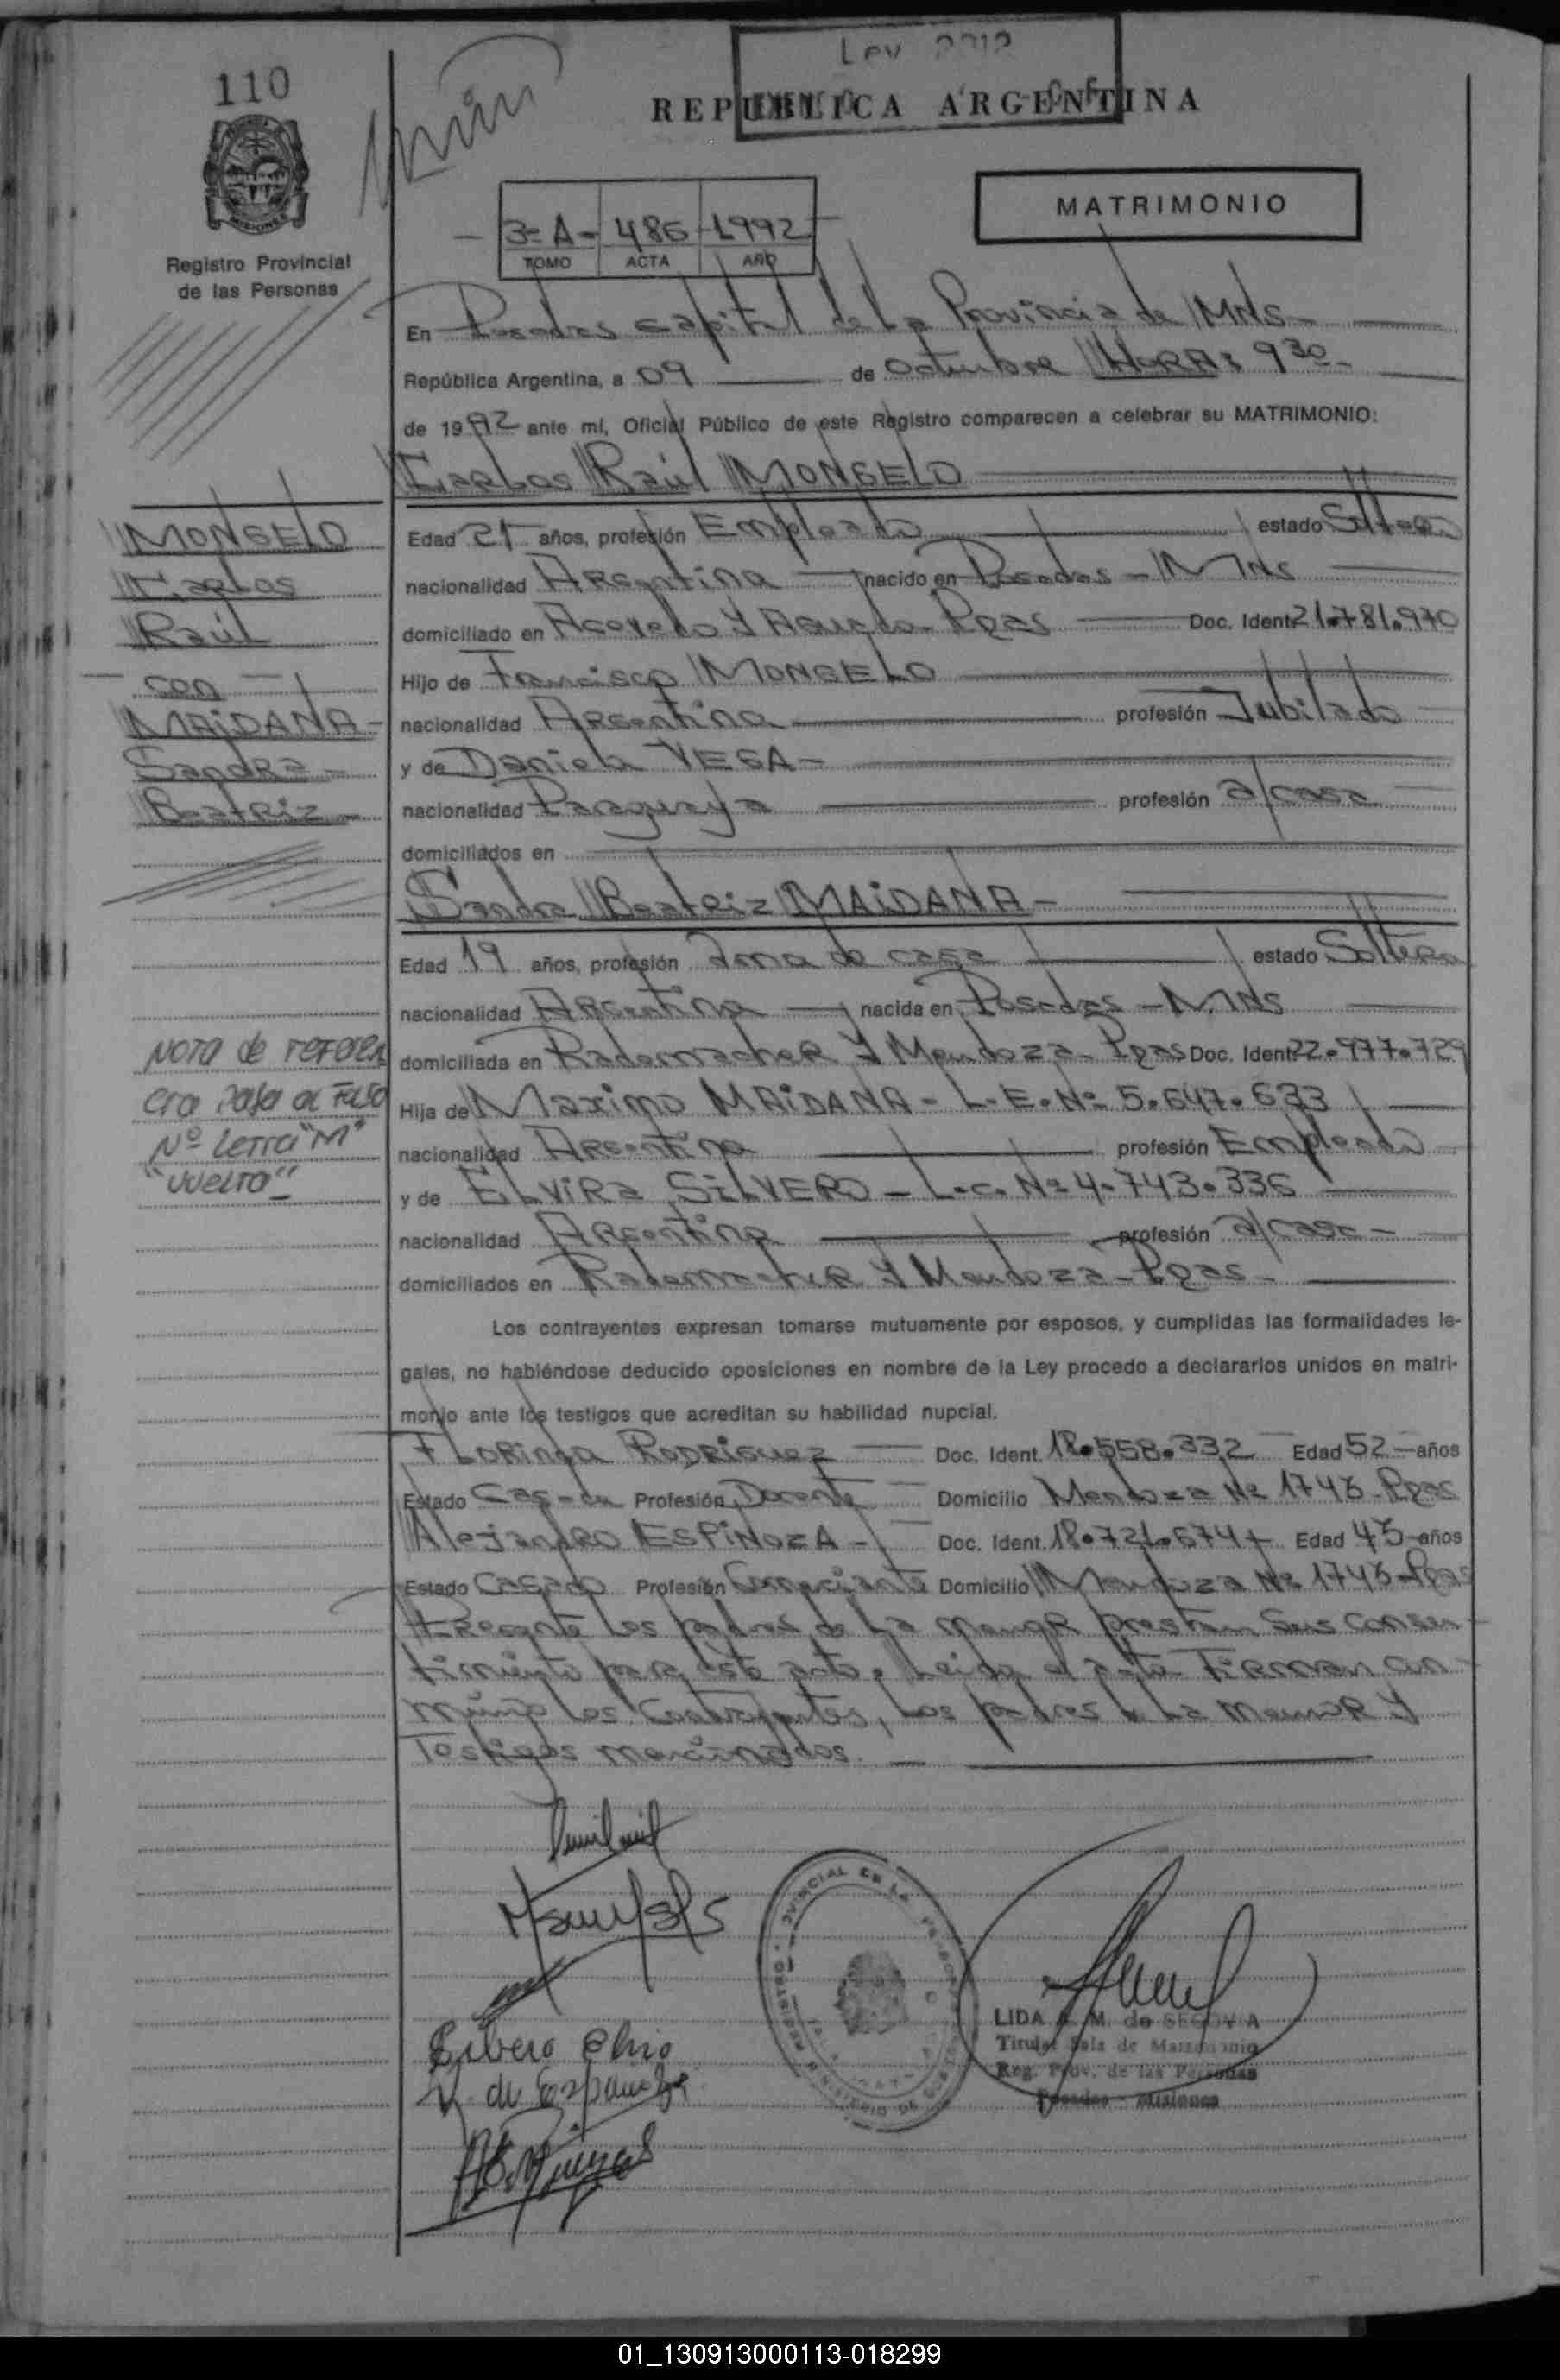 110
Ley 2212
REPUBLICA ARGENTINA
MATRIMONIO
3º A - 486 - 1992
TOMO ACTA AÑO
Registro Provincial
de las Personas
En Posadas capital de la Provincia de Mnes -
República Argentina, a 09 de octubre HORA: 9 30 -
de 1992 ante mí, Oficial Público de este Registro comparecen a celebrar su MATRIMONIO:
Carlos Raúl MONGELO
MONGELO
Carlos
Raúl
con
MAIDANA -
Sandra -
Beatriz -
Edad 21 años, profesión Empleado estado Soltero
nacionalidad Argentina nacido en Posadas - Mnes
domiciliado en Acevedo y Agueda - Pdas Doc. Ident. 21.781.970
Hijo de Francisco MONGELO
nacionalidad Argentina profesión Jubilado
y de Daniela VEGA -
nacionalidad Paraguaya profesión a/casa
domiciliados en
Sandra Beatriz MAIDANA -
Edad 19 años, profesión Ama de casa estado Soltera
nacionalidad Argentina nacida en Posadas - Mnes
domiciliada en Rademacher y Mendoza - Pdas Doc. Ident. 22.977.729
Hija de Maximo MAIDANA - L.E. Nº 5.647.633
nacionalidad Argentina profesión Empleado
y de ELVIRA SILVERO - L.C. Nº 4.743.336
nacionalidad Argentina profesión a/casa -
domiciliados en Rademacher y Mendoza - Pdas -
NOTA de referen
cia pasa al Folio
Nº Letra "M"
"Vuelta"
Los contrayentes expresan tomarse mutuamente por esposos, y cumplidas las formalidades le-
gales, no habiéndose deducido oposiciones en nombre de la Ley procedo a declararlos unidos en matri-
monio ante los testigos que acreditan su habilidad nupcial.
Florinda RODRIGUEZ Doc. Ident. 18.558.332 Edad 52 años
Estado Casada Profesión Docente Domicilio Mendoza Nº 1743 - Pdas
Alejandro ESPINOZA - Doc. Ident. 18.721.674 Edad 45 años
Estado Casado Profesión Comerciante Domicilio Mendoza Nº 1743 - Pdas
Presente los padres de la menor prestan sus consen
timiento para este acto. Leida el acta Firman con
migo los Contrayentes, los padres de la menor y
Testigos mencionados.
LIDA M. de SEGOVIA
Titular Sala de Matrimonio
Reg. Prov. de las Personas
Posadas - Misiones
01_130913000113-018299